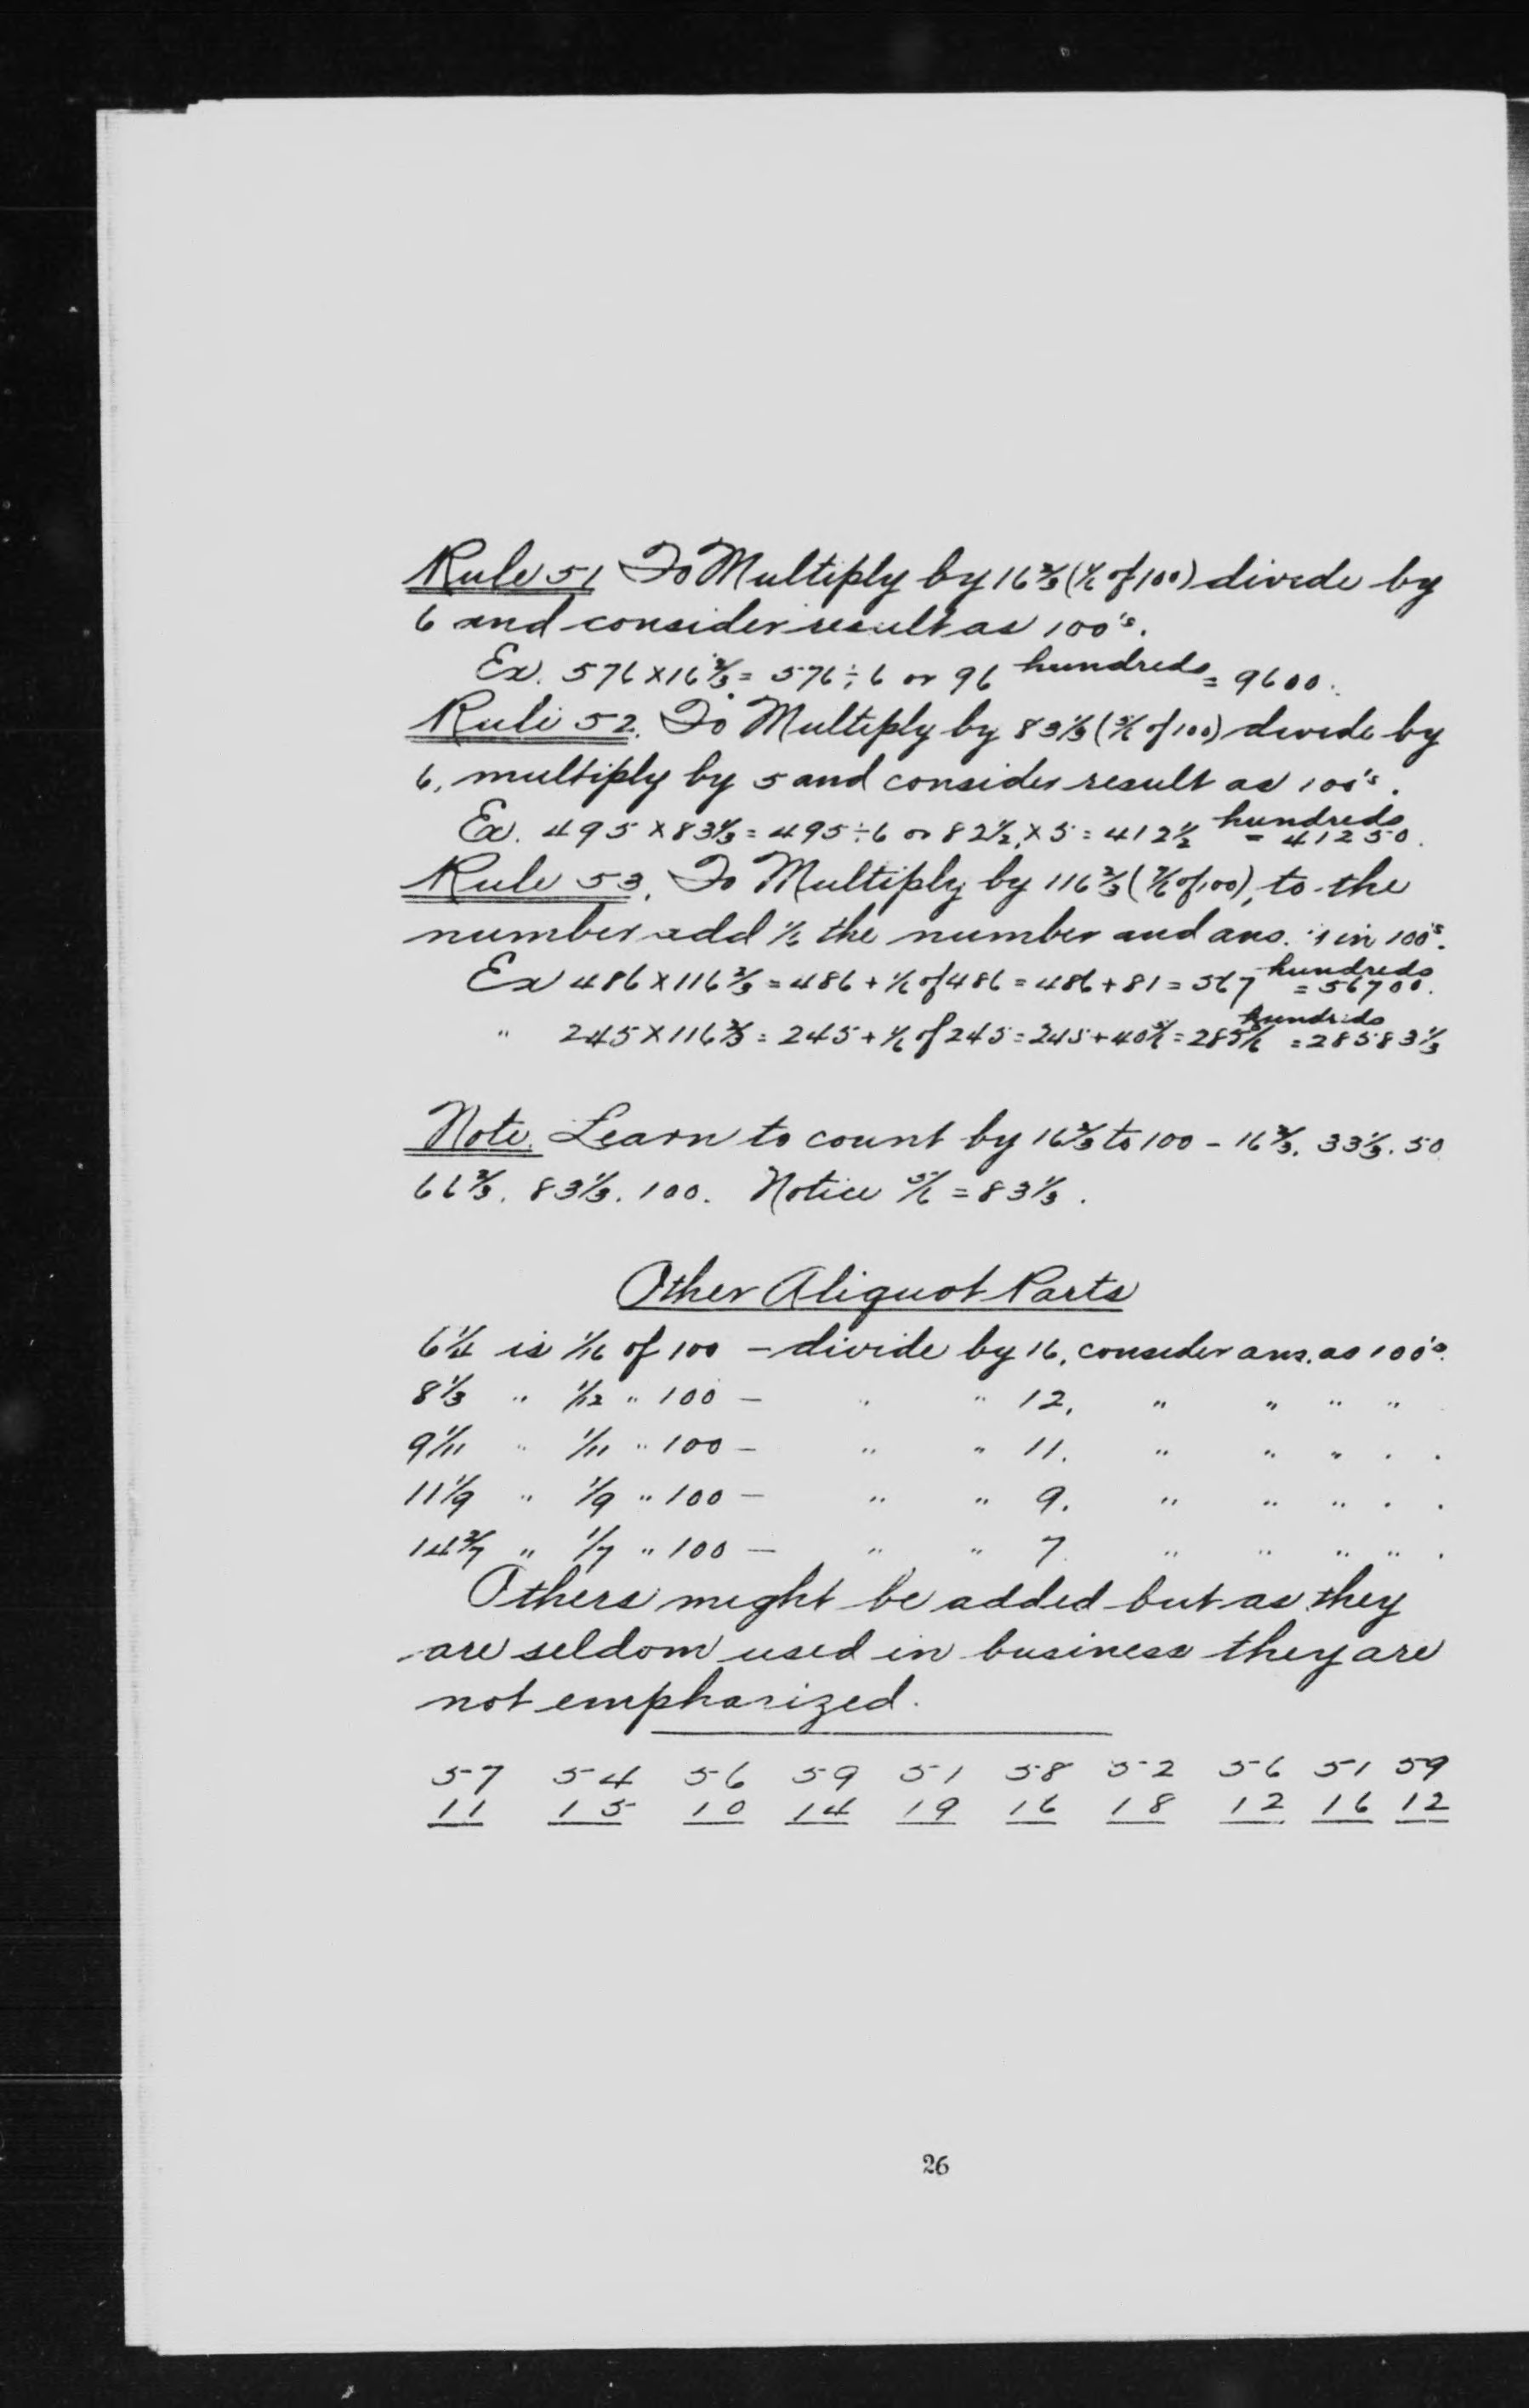 Rule 51 To Multiply by 16 2/3 (1/6 of 100) divide by
6 and consider result as 100's.
Ex. 576 × 16 2/3 = 576 ÷ 6 or 96 hundreds = 9600.
Rule 52. To Multiply by 83 1/3 (5/6 of 100) divide by
6, multiply by 5 and consider result as 100's.
Ex. 495 × 83 1/3 = 495 ÷ 6 or 82 1/2, × 5 = 412 1/2 hundreds = 41250.
Rule 53. To Multiply by 116 2/3 (7/6 of 100), to the
number add 1/6 the number and ans. is in 100's.
Ex 486 × 116 2/3 = 486 + 1/6 of 486 = 486 + 81 = 567 hundreds = 56700.
" 245 × 116 2/3 = 245 + 1/6 of 245 = 245 + 40 5/6 = 285 5/6 hundreds = 28583 1/3
Note. Learn to count by 16 2/3 to 100 - 16 2/3. 33 1/3. 50
66 2/3. 83 1/3. 100. Notice 5/6 = 83 1/3.
Other Aliquot Parts
6 1/4 is 1/16 of 100 - divide by 16, consider ans. as 100's.
8 1/3 " 1/12 " 100 - " " 12, " " " "
9 1/11 " 1/11 " 100 - " " 11. " " " " "
11 1/9 " 1/9 " 100 - " " 9. " " " " "
14 2/7 " 1/7 " 100 - " " 7 " " " " "
Others might be added but as they
are seldom used in business they are
not emphasized.
57 54 56 59 51 58 52 56 51 59
11 15 10 14 19 16 18 12 16 12
26